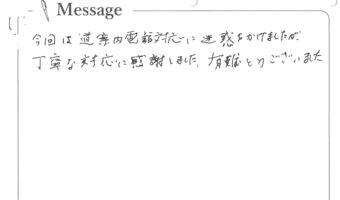 Message
今回は道案内電話対応に迷惑をかけましたが
丁寧な対応に感謝しました。有難とうございました